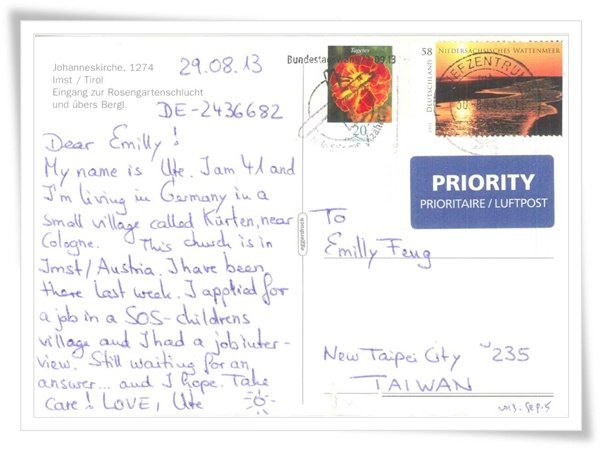 Johanneskirche, 1274
Imst / Tirol
Eingang zur Rosengartenschlucht
und übers Bergl.
29.08.13
DE-2436682
Dear Emilly!
My name is Ute. I am 41 and
I'm living in Germany in a
small village called Kürten, near
Cologne. This church is in
Imst/Austria. I have been
there last week. I applied for
a job in a SOS-childrens
village and I had a job inter-
view. Still waiting for an
answer... and I hope. Take
care! LOVE, Ute
eggerdruck
Bundestagswahl 22.09.13
Tagetes
20
58 NIEDERSÄCHSISCHES WATTENMEER
DEUTSCHLAND
BRIEFZENTRUM
PRIORITY
PRIORITAIRE / LUFTPOST
To
Emilly Feng
New Taipei City 235
TAIWAN
2013. Sep. 5